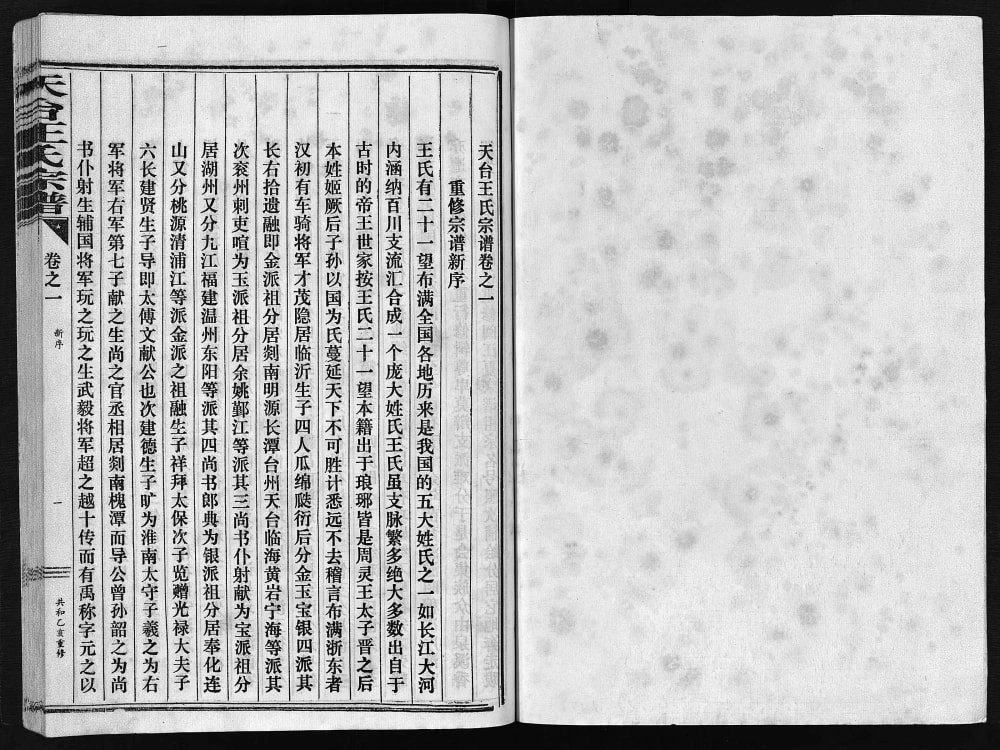 天台王氏宗谱卷之一
重修宗谱新序
王氏有二十一望布满全国各地历来是我国的五大姓氏之一如长江大河
内涵纳百川支流汇合成一个庞大姓氏王氏虽支脉繁多绝大多数出自于
古时的帝王世家按王氏二十一望本籍出于琅琊皆是周灵王太子晋之后
本姓姬厥后子孙以国为氏蔓延天下不可胜计悉远不去稽言布满浙东者
汉初有车骑将军才茂隐居临沂生子四人瓜绵瓞衍后分金玉宝银四派其
长右拾遗融即金派祖分居剡南明源长潭台州天台临海黄岩宁海等派其
次兖州刺吏喧为玉派祖分居余姚鄞江等派其三尚书仆射献为宝派祖分
居湖州又分九江福建温州东阳等派其四尚书郎典为银派祖分居奉化连
山又分桃源清浦江等派金派之祖融生子祥拜太保次子览赠光禄大夫子
六长建贤生子导即太傅文献公也次建德生子旷为淮南太守子羲之为右
军将军右军第七子献之生尚之官丞相居剡南槐潭而导公曾孙韶之为尚
书仆射生辅国将军玩之玩之生武毅将军超之越十传而有禹称字元之以
天台王氏宗谱
卷之一
新序
一
共和乙亥重修